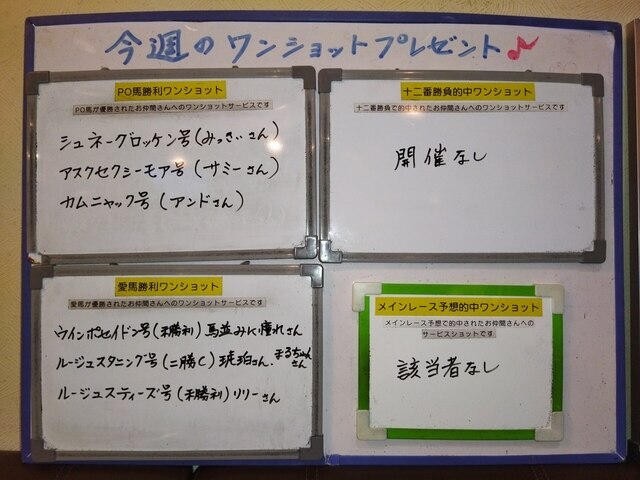 今週のワンショットプレゼント♪
PO馬勝利ワンショット
PO馬が優勝されたお仲間さんへのワンショットサービスです
シュネーグロッケン号(みっきぃさん)
アスクセクシーモア号(サミーさん)
カムニャック号(アンドさん)
十二番勝負的中ワンショット
十二番勝負で的中されたお仲間さんへのワンショットサービスです
開催なし
愛馬勝利ワンショット
愛馬が優勝されたお仲間さんへのワンショットサービスです
ウインポセイドン号(未勝利)馬並みに憧れさん
ルージュスタニング号(二勝C)琥珀さん.まるちゃんさん
ルージュスティーズ号(未勝利)リリーさん
メインレース予想的中ワンショット
メインレース予想で的中されたお仲間さんへの
サービスショットです
該当者なし